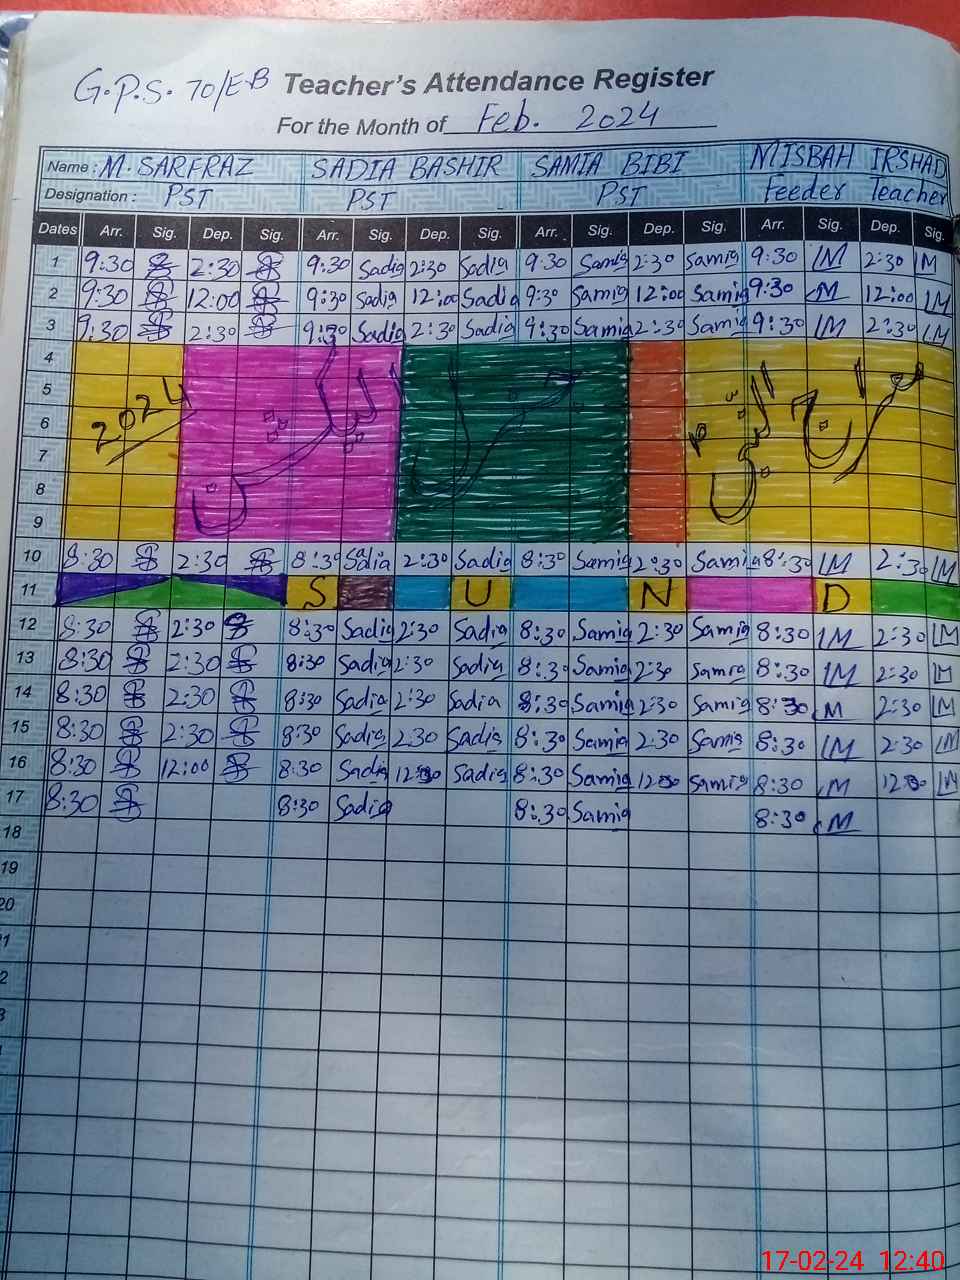 G.P.S. 70/E-B Teacher's Attendance Register
For the Month of Feb. 2024
Name: M. SARFRAZ SADIA BASHIR SAMIA BIBI MISBAH IRSHAD
Designation: PST PST PST Feeder Teacher
Dates Arr. Sig. Dep. Sig. Arr. Sig. Dep. Sig. Arr. Sig. Dep. Sig. Arr. Sig. Dep. Sig.
1 9:30 2:30 9:30 Sadia 2:30 Sadia 9:30 Samia 2:30 Samia 9:30 IM 2:30 IM
2 9:30 12:00 9:30 Sadia 12:00 Sadia 9:30 Samia 12:00 Samia 9:30 IM 12:00 IM
3 9:30 2:30 9:30 Sadia 2:30 Sadia 9:30 Samia 2:30 Samia 9:30 IM 2:30 IM
4
5
6 2024
7
8
9
10 8:30 2:30 8:30 Sadia 2:30 Sadia 8:30 Samia 2:30 Samia 8:30 IM 2:30 IM
11 S U N D
12 8:30 2:30 8:30 Sadia 2:30 Sadia 8:30 Samia 2:30 Samia 8:30 IM 2:30 IM
13 8:30 2:30 8:30 Sadia 2:30 Sadia 8:30 Samia 2:30 Samia 8:30 IM 2:30 IM
14 8:30 2:30 8:30 Sadia 2:30 Sadia 8:30 Samia 2:30 Samia 8:30 IM 2:30 IM
15 8:30 2:30 8:30 Sadia 2:30 Sadia 8:30 Samia 2:30 Samia 8:30 IM 2:30 IM
16 8:30 12:00 8:30 Sadia 12:30 Sadia 8:30 Samia 12:00 Samia 8:30 IM 12:30 IM
17 8:30 8:30 Sadia 8:30 Samia 8:30 IM
18
19
20
17-02-24 12:40